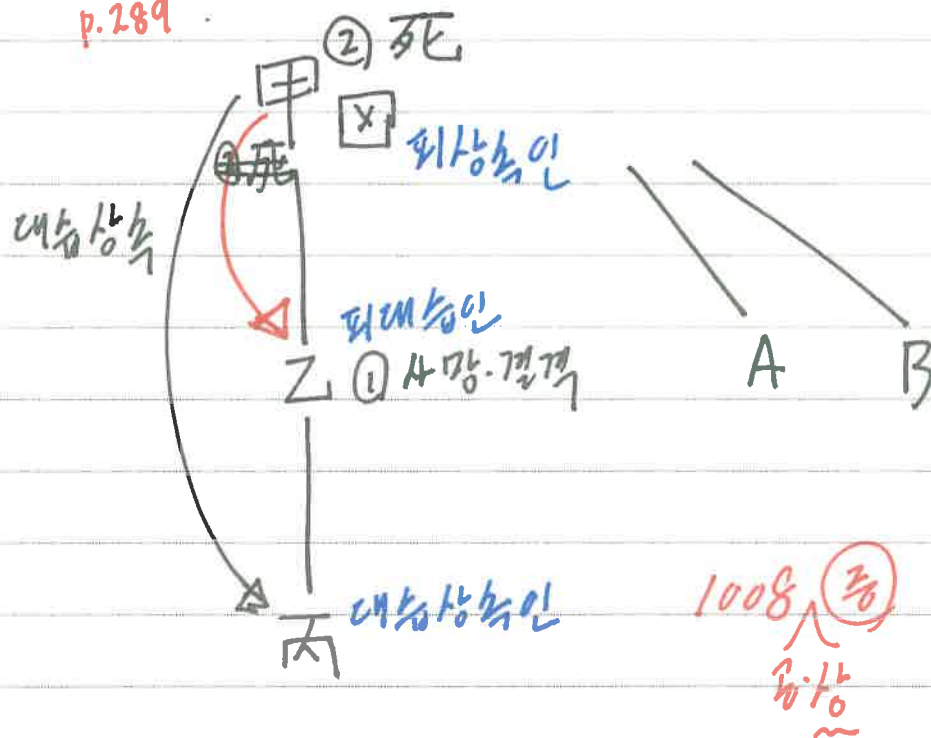 p.289
② 死
甲
X
피상속인
대습상속
피대습인
乙 ① 사망·결격
A
B
丙 대습상속인
1008 증
공·상